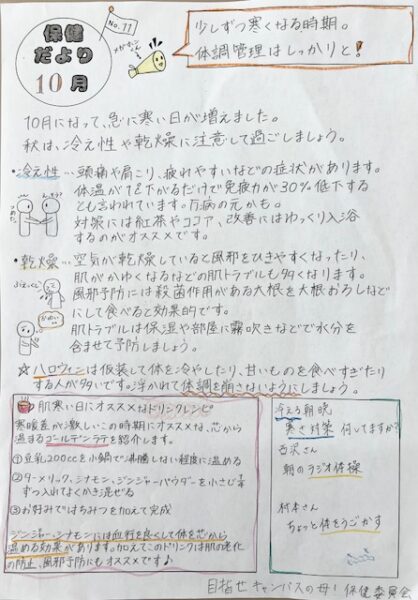 No.11
保健
だより
10月
メガホンくん
少しずつ寒くなる時期。
体調管理はしっかりと!
10月になって、急に寒い日が増えました。
秋は、冷え性や乾燥に注意して過ごしましょう。
・冷え性…頭痛や肩こり、疲れやすいなどの症状があります。
体温が1℃下がるだけで免疫力が30%低下する
とも言われています。百病の元かも。
対策には紅茶やココア、改善にはゆっくり入浴
するのがオススメです。
・乾燥…空気が乾燥していると風邪をひきやすくなったり、
肌がかゆくなるなどの肌トラブルも多くなります。
風邪予防には殺菌作用がある大根を大根おろしなど
にして食べると効果的です。
肌トラブルは保湿や部屋に霧吹きなどで水分を
含ませて予防しましょう。
☆ハロウィンは仮装して体を冷やしたり、甘いものを食べすぎたり
する人が多いです。浮かれて体調を崩さないようにしましょう。
肌寒い日にオススメなドリンクレシピ
寒暖差が激しいこの時期にオススメな、芯から
温まるゴールデンラテを紹介します。
①豆乳200ccを小鍋で沸騰しない程度に温める
②ターメリック、シナモン、ジンジャーパウダーを小さじ
ずつ入れてよくかき混ぜる
③お好みではちみつを加えて完成
ジンジャー、シナモンには血行を良くして体を芯から
温める効果があります。加えてこのドリンクは肌の老化
の防止、風邪予防にもオススメです♪
冷える朝晩
寒さ対策 何してますか?
さん
朝のラジオ体操
村本さん
ちょっと体をうごかす
目指せキャンパスの母! 保健委員会